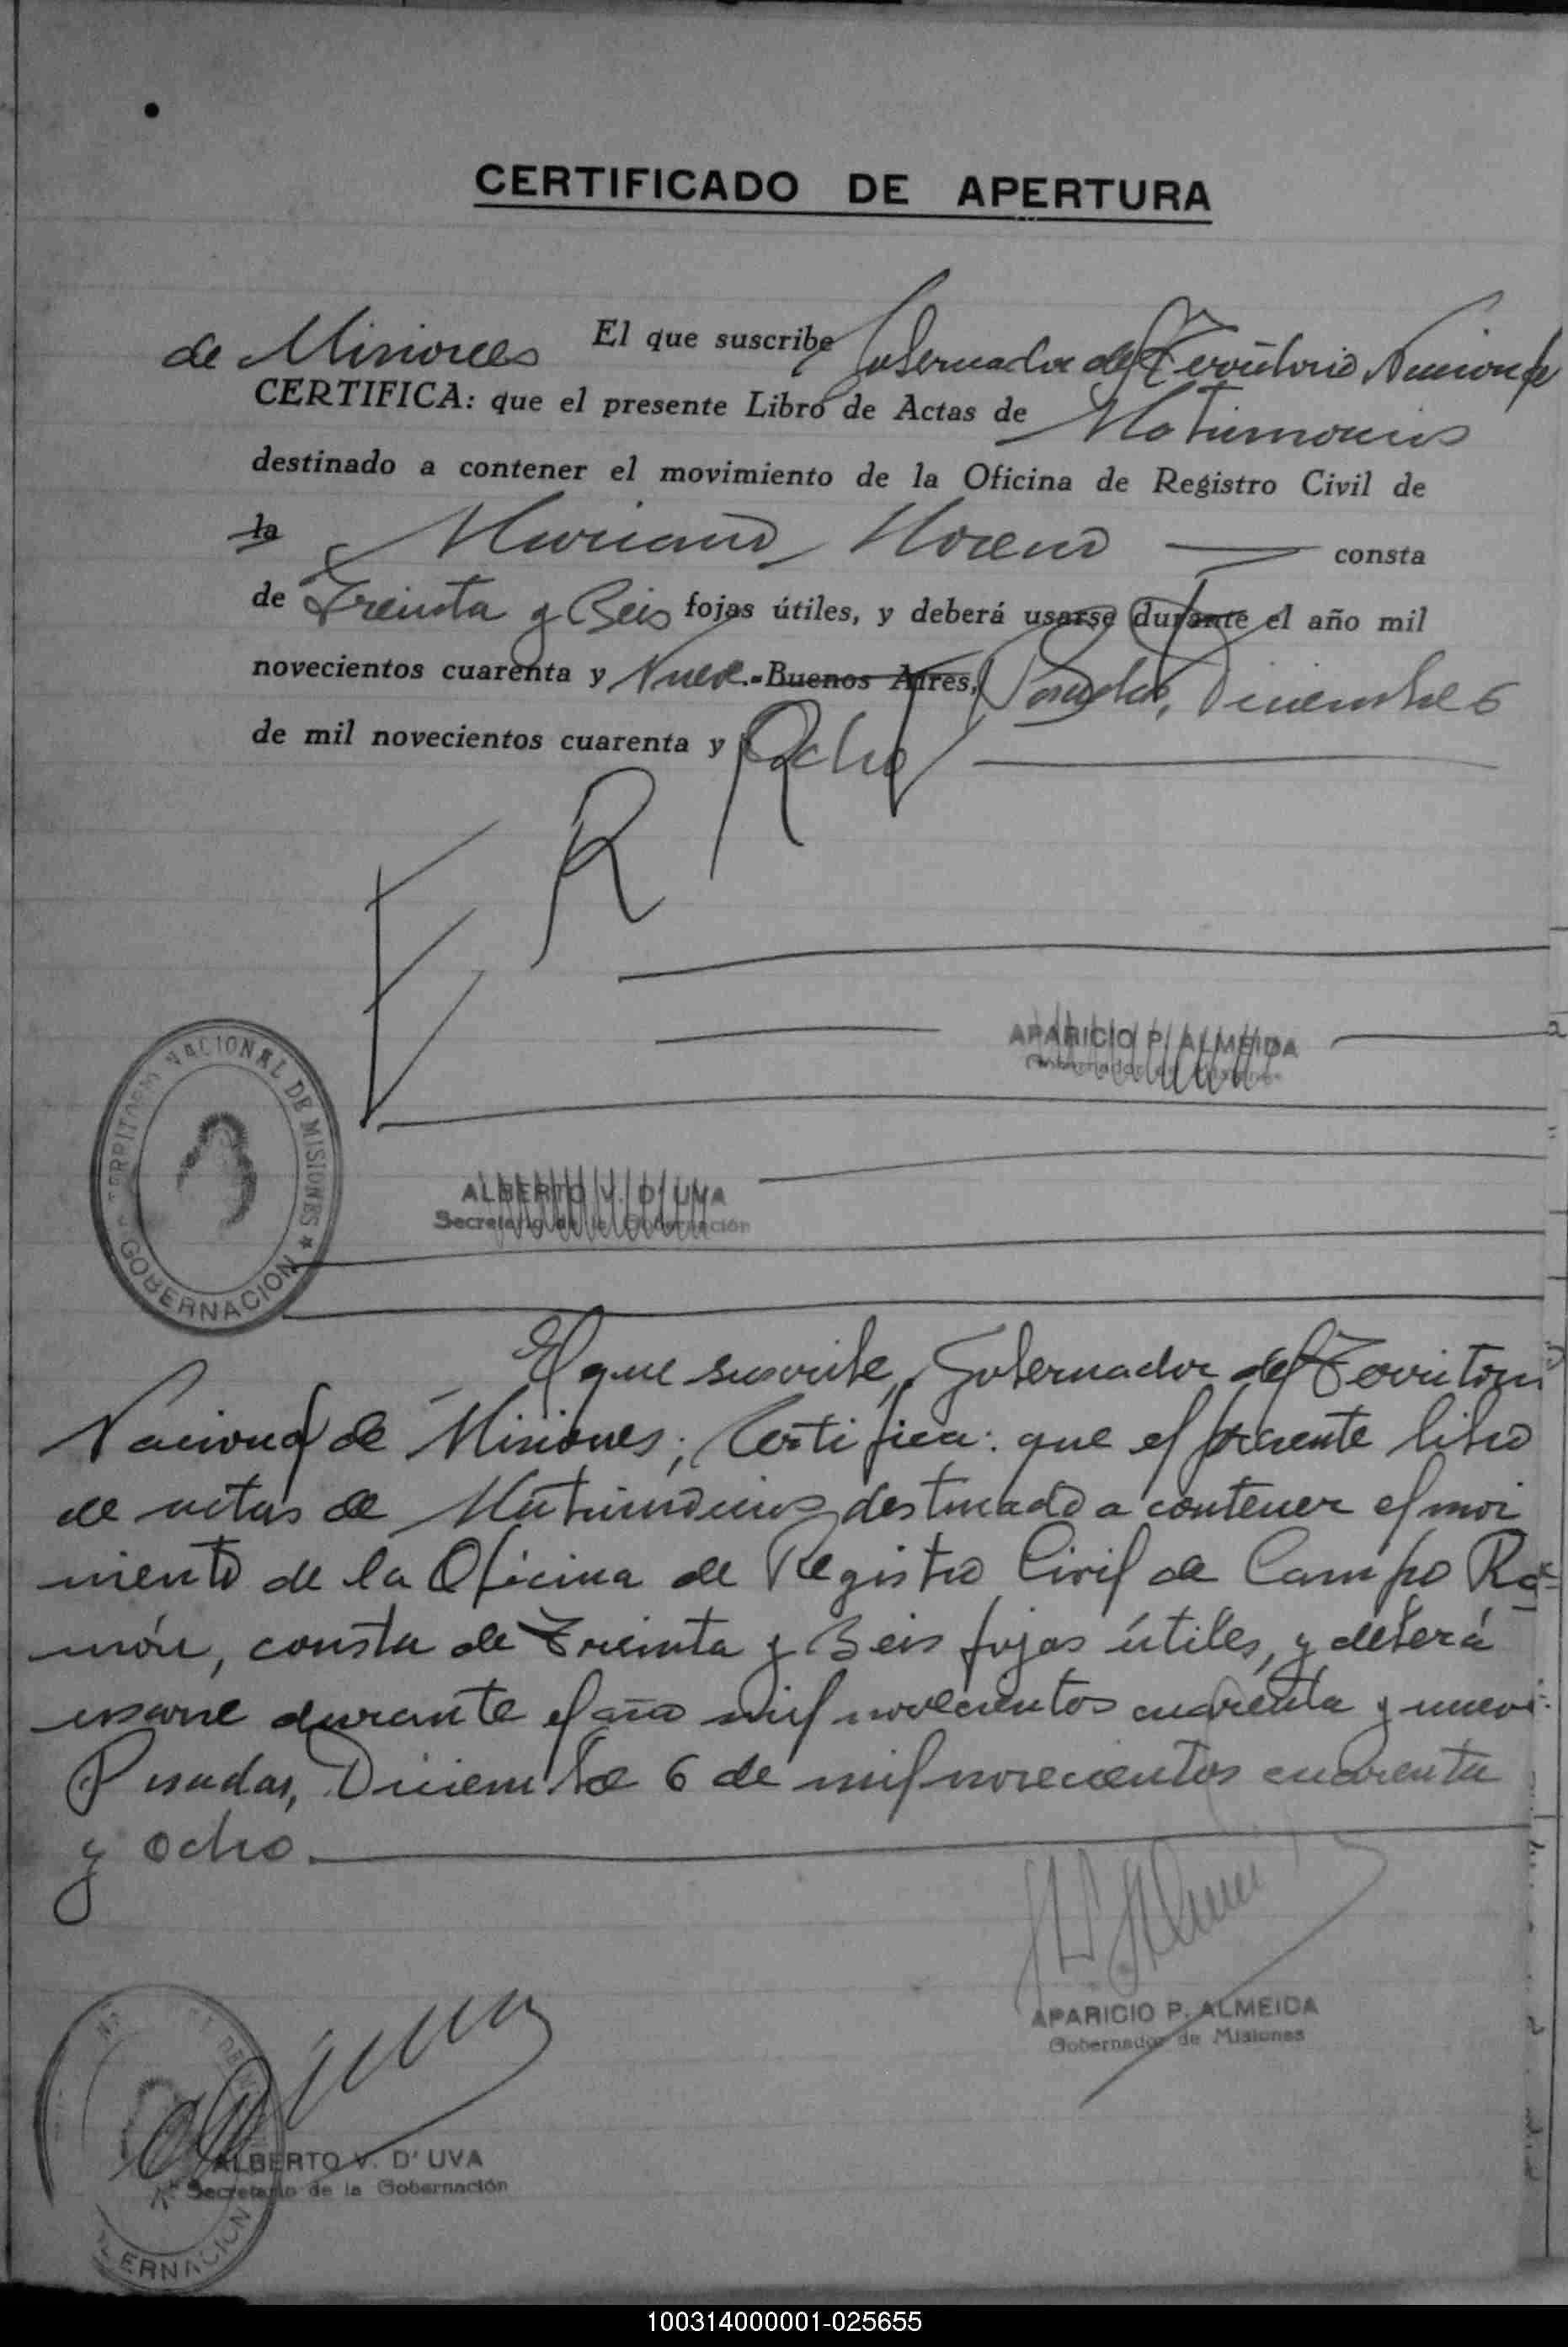 CERTIFICADO DE APERTURA
El que suscribe Gobernador del Territorio Nacional
de Misiones
CERTIFICA: que el presente Libro de Actas de Matrimonios
destinado a contener el movimiento de la Oficina de Registro Civil de
la Mariano Moreno consta
de Treinta y Seis fojas útiles, y deberá usarse durante el año mil
novecientos cuarenta y Nueve.-Buenos Aires, Posadas, Diciembre 6
de mil novecientos cuarenta y Ocho
E R R
TERRITORIO NACIONAL DE MISIONES ★ GOBERNACION
APARICIO P. ALMEIDA
Gobernador de Misiones
ALBERTO V. D' UVA
Secretario de la Gobernación
El que suscribe, Gobernador del Territorio
Nacional de Misiones; Certifica: que el presente libro
de actas de Matrimonios destinado a contener el movi
miento de la Oficina de Registro Civil de Campo Ra=
món, consta de Treinta y Seis fojas útiles, y deberá
usarse durante el año mil novecientos cuarenta y nueve.
Posadas, Diciembre 6 de mil novecientos cuarenta
y ocho.
APARICIO P. ALMEIDA
Gobernador de Misiones
ALBERTO V. D' UVA
Secretario de la Gobernación
ERNACION
100314000001-025655